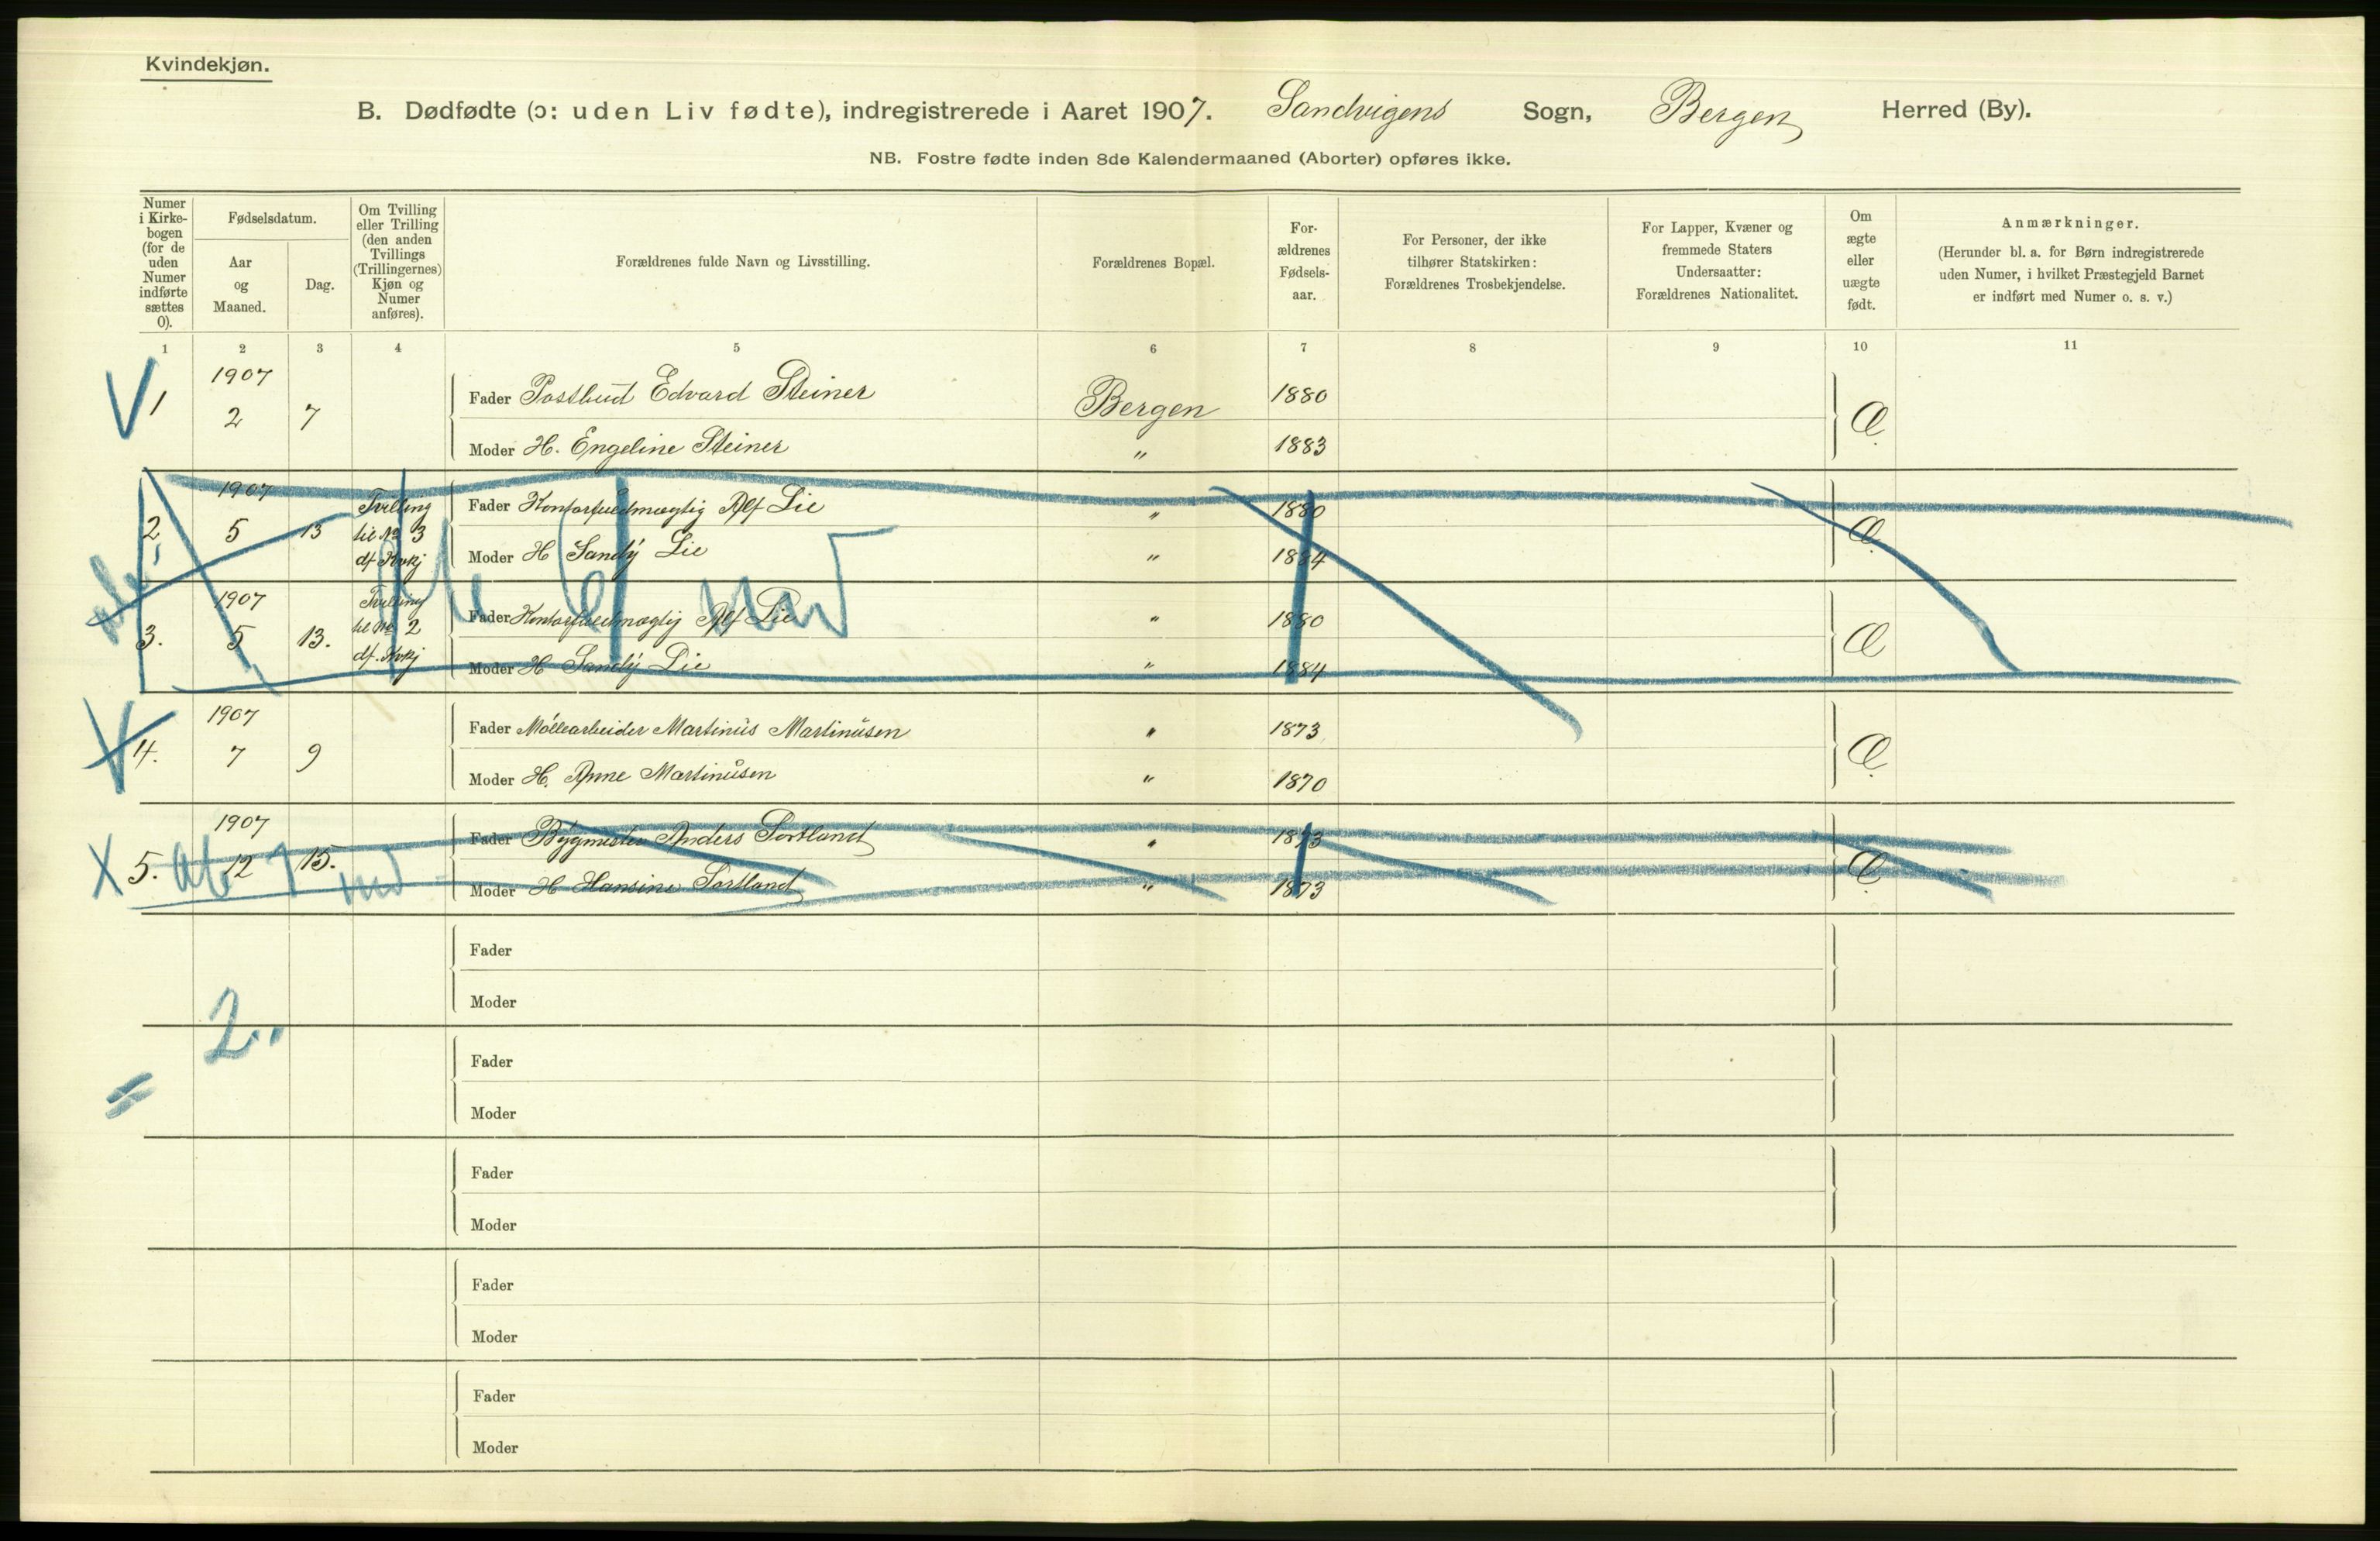 Kvindekjøn.
B. Dødfødte (ɔ: uden Liv fødte), indregistrerede i Aaret 1907. Sandvigens Sogn, Bergen Herred (By).
NB. Fostre fødte inden 8de Kalendermaaned (Aborter) opføres ikke.
Numer i Kirke-bogen (for de uden Numer indførte sættes 0).
Fødselsdatum.
Aar og Maaned.
Dag.
Om Tvilling eller Trilling (den anden Tvillings (Trillingernes) Kjøn og Numer anføres).
Forældrenes fulde Navn og Livsstilling.
Forældrenes Bopæl.
For-ældrenes Fødsels-aar.
For Personer, der ikke tilhører Statskirken: Forældrenes Trosbekjendelse.
For Lapper, Kvæner og fremmede Staters Undersaatter: Forældrenes Nationalitet.
Om ægte eller uægte født.
Anmærkninger.
(Herunder bl. a. for Børn indregistrerede uden Numer, i hvilket Præstegjeld Barnet er indført med Numer o. s. v.)
1 2 3 4 5 6 7 8 9 10 11
1907
1 2 7 Fader Postbud Edvard Steiner Bergen 1880 Æ.
Moder H. Engeline Steiner " 1883
1907 Tvilling
2, 5 13 til No 3 Fader Kontorfuldmægtig Alf Lie " 1880 Æ.
df Kvkj Moder H Sandy Lie " 1884
1907 Tvilling
3. 5 13. til No 2 Fader Kontorfuldmægtig Alf Lie " 1880 Æ
df. Kvkj Moder H Sandy Lie " 1884
1907
4. 7 9 Fader Möllearbeider Martinus Martinusen " 1873 Æ.
Moder H. Anne Martinusen " 1870
1907
X 5. 12 15. Fader Bygmester Anders Sortland " 1873 Æ.
ab 7 md
Moder H Hansine Sortland " 1873
Fader
Moder
2
Fader
Moder
Fader
Moder
Fader
Moder
Fader
Moder